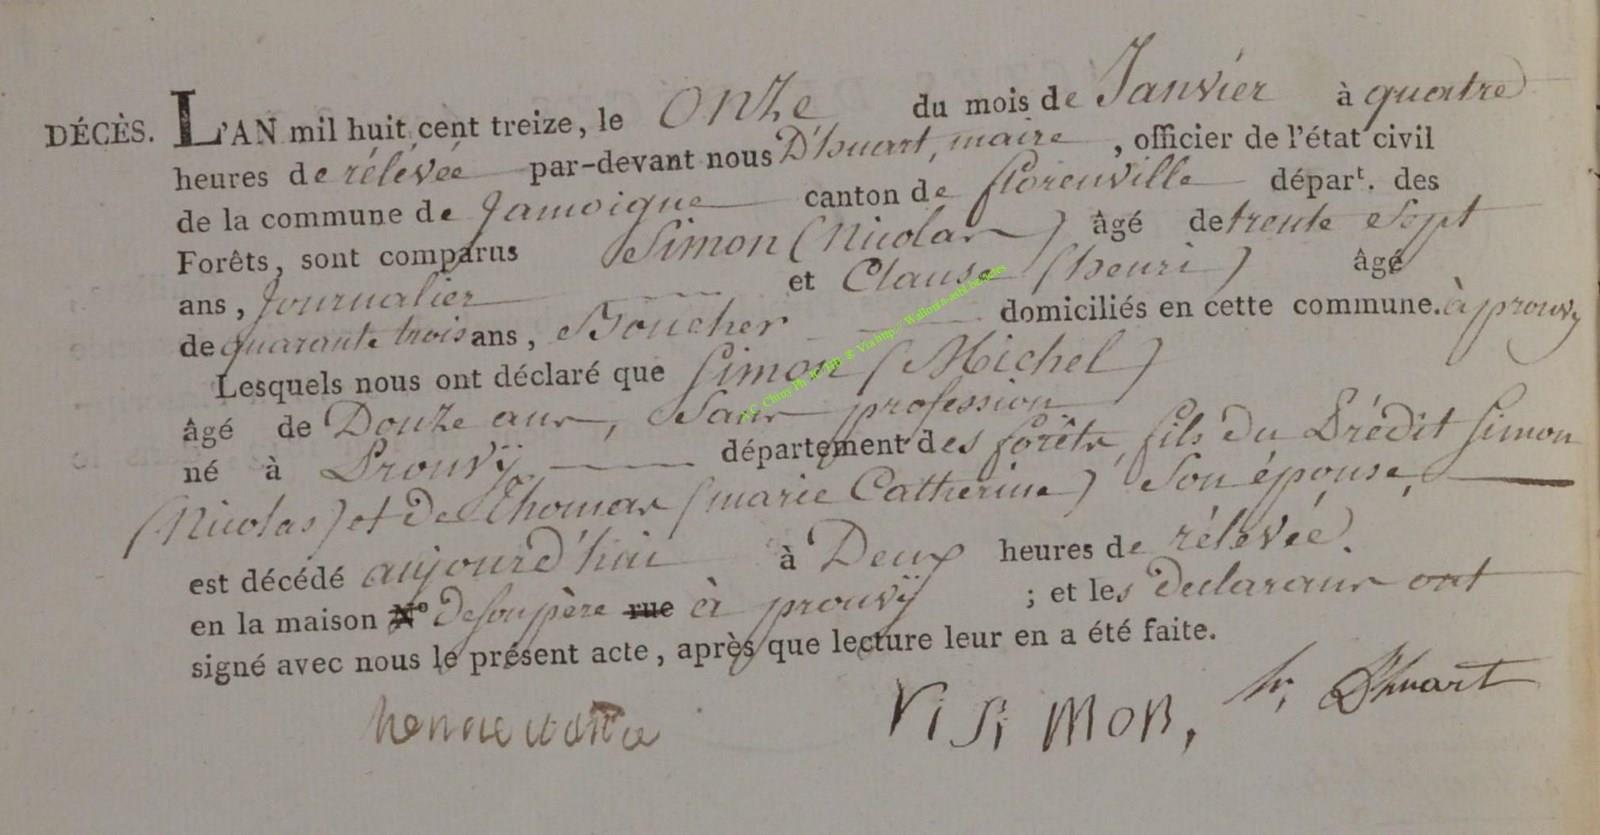 DÉCÈS. L'AN mil huit cent treize, le onze du mois de Janvier à quatre
heures de rélévée par-devant nous D'huart, maire, officier de l'état civil
de la commune de Jamoigne canton de florenville départ. des
Forêts, sont comparus Simon (Nicolas) âgé de trente Sept
ans, Journalier et Clause (henri) âgé
de quarante trois ans, Boucher domiciliés en cette commune. à prouvy
Lesquels nous ont déclaré que Simon (Michel)
âgé de Douze ans, Sans profession
né à Prouvÿ département des forêts, fils du Prédit Simon
(Nicolas) et de Thomas (marie Catherine) Son épouse,
est décédé aujourd'hui à Deux heures de rélévée.
en la maison N° de son père rue à prouvÿ ; et les declarans ont
signé avec nous le présent acte, après que lecture leur en a été faite.
Simon, h, Dhuart